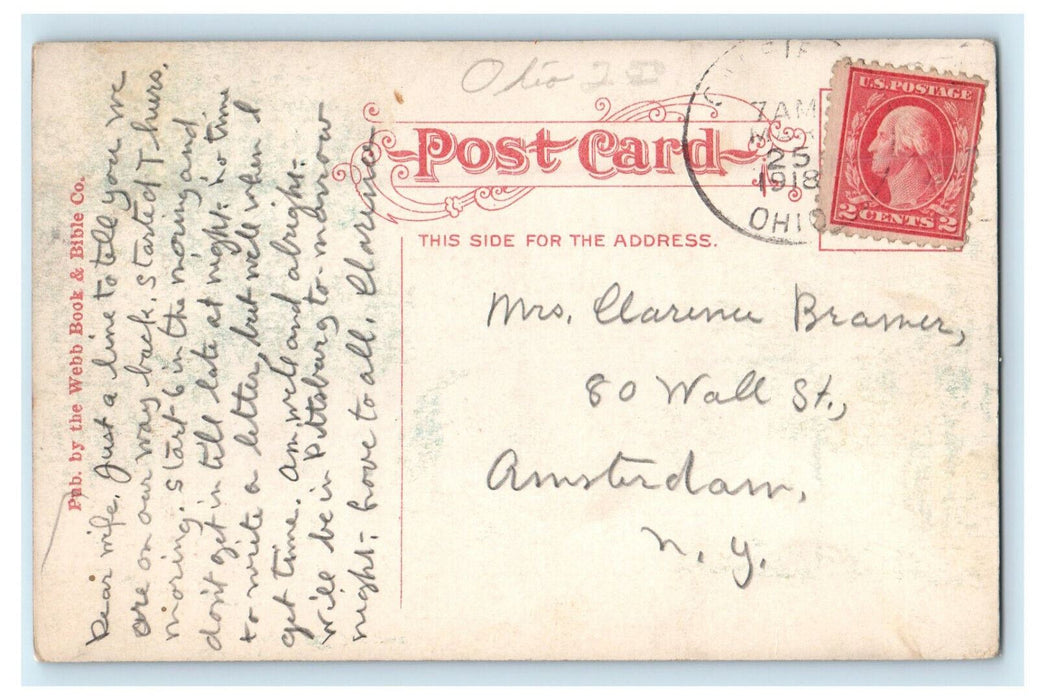 Ohio
Post Card
7 AM
25
1918
OHIO
U.S. POSTAGE
2 CENTS 2
THIS SIDE FOR THE ADDRESS.
Mrs. Clarence Bramer,
80 Wall St.,
Amsterdam,
N. Y.
Pub. by the Webb Book & Bible Co.
Dear wife. Just a line to tell you we
are on our way back. Started Thurs.
moring. Start 6 in the moring and
don't get in till late at night. no time
to write a letter, but will when I
get time. Am well and alright.
Will be in Pittsburg to-morrow
night. Love to all. Clarence